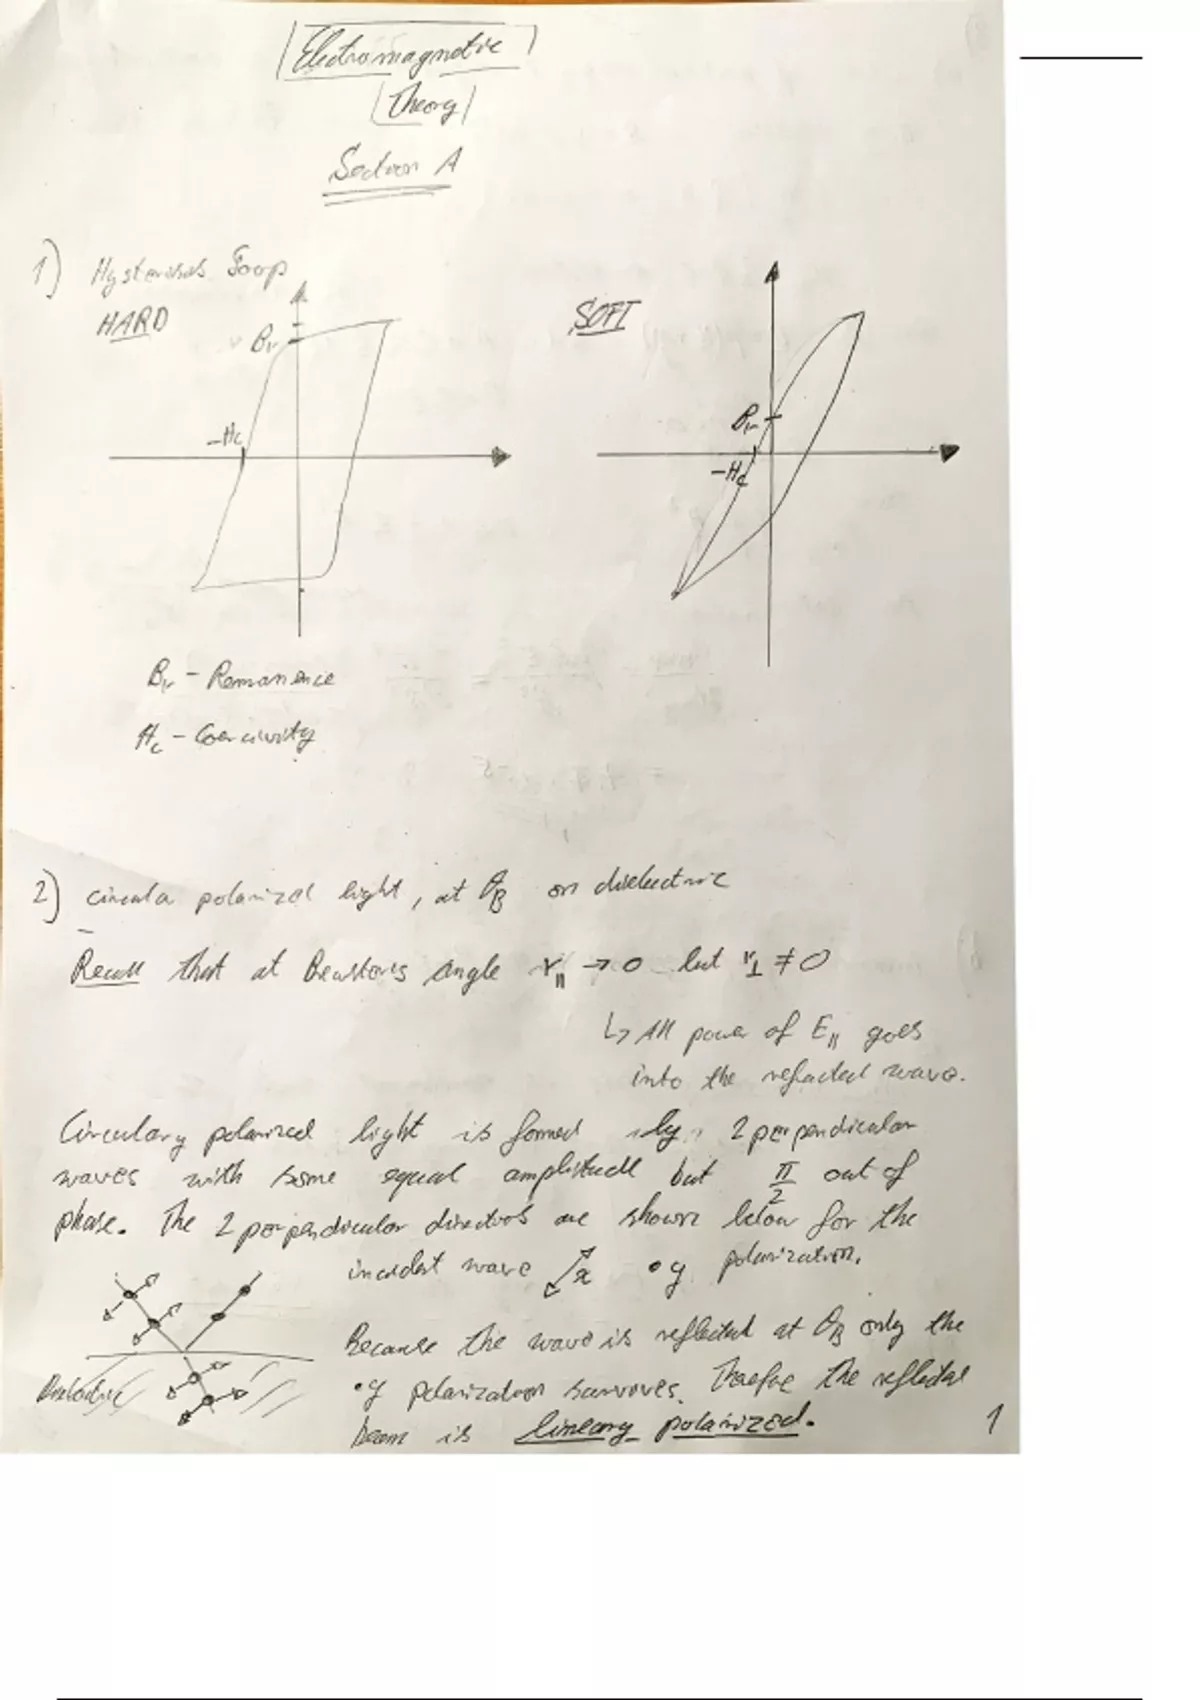 Electromagnetic
Theory
Section A
1) Hysterisis Loop
HARD
SOFT
Br
-Hc
Br
-Hc
Br - Remanence
Hc - Coercivity
2) circula polarized light, at θB on dielectric
Recall that at Brewsters angle r∥ → 0 but r⊥ ≠ 0
↳ All power of E∥ goes
into the refracted wave.
Circulary polarized light is formed by 2 perpendicular
waves with same equal amplitude but π/2 out of
phase. The 2 perpendicular directions are shown below for the
incident wave x • y polarization.
Because the wave is reflected at θB only the
• y polarization survives. Therefore the reflected
beam is lineary polarized.
Dielectric
1